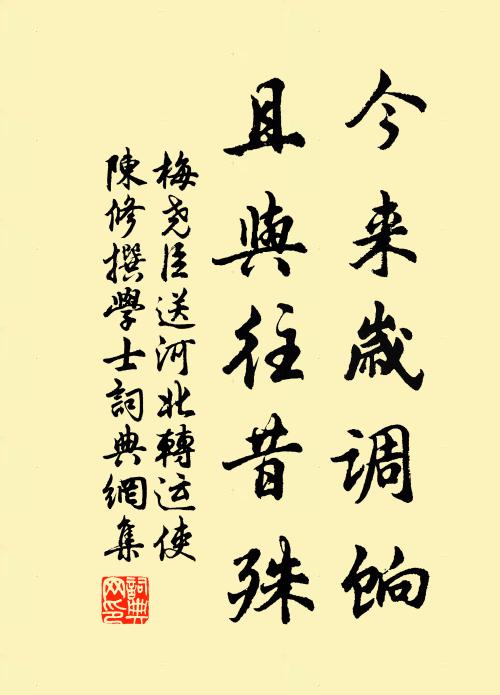 今来歳调饷
且與往昔殊
梅尧臣送河北轉运使
陳修撰學士詞典網集
詞典网印